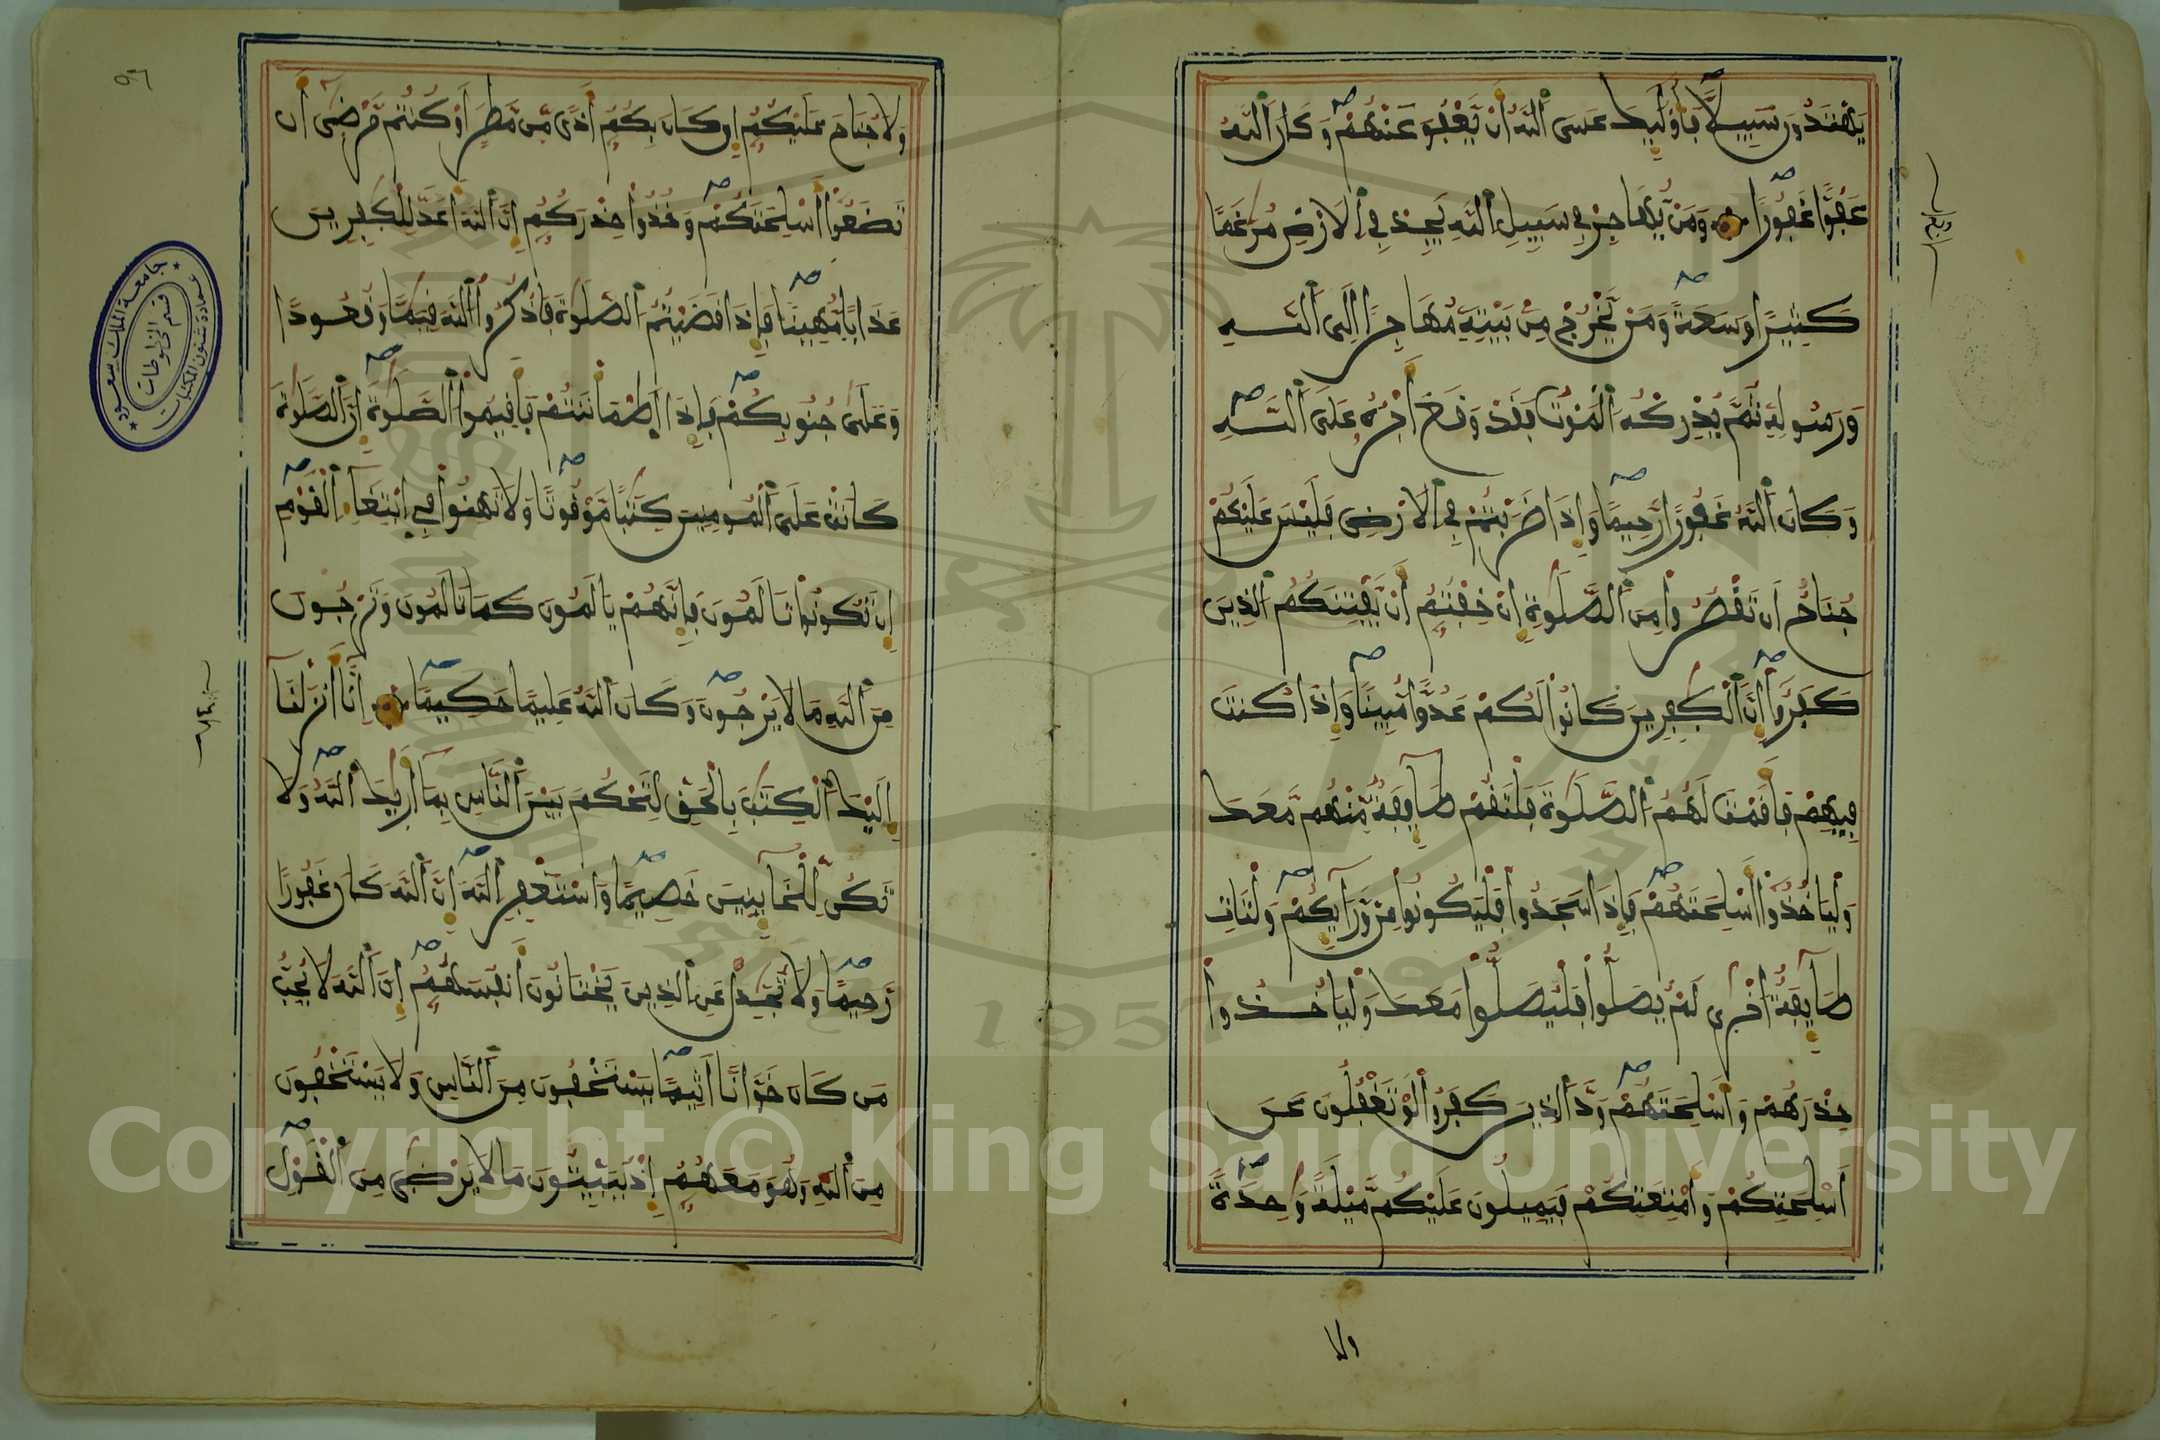 يَهْتَدُونَ سَبِيلًا فَأُوْلَٰٓئِكَ عَسَى ٱللَّهُ أَنْ يَّعْفُوَ عَنْهُمْ وَكَانَ ٱللَّهُ
عَفُوًّا غَفُورًا وَمَنْ يُّهَاجِرْ فِي سَبِيلِ ٱللَّهِ يَجِدْ فِي ٱلَارْضِ مُرَٰغَمًا
كَثِيرًا وَسَعَةً وَمَنْ يَّخْرُجْ مِنۢ بَيْتِهِ مُهَاجِرًا إِلَى ٱللَّهِ
وَرَسُولِهِ ثُمَّ يُدْرِكْهُ ٱلْمَوْتُ فَقَدْ وَقَعَ أَجْرُهُ عَلَى ٱللَّهِ
وَكَانَ ٱللَّهُ غَفُورًا رَّحِيمًا وَإِذَا ضَرَبْتُمْ فِي ٱلَارْضِ فَلَيْسَ عَلَيْكُمْ
جُنَاحٌ اَن تَقْصُرُوا مِنَ ٱلصَّلَوٰةِ إِنْ خِفْتُمُ أَنْ يَّفْتِنَكُمُ ٱلذِينَ
كَفَرُوٓا إِنَّ ٱلْكَٰفِرِينَ كَانُوا لَكُمْ عَدُوًّا مُّبِينًا وَإِذَا كُنتَ
فِيهِمْ فَأَقَمْتَ لَهُمُ ٱلصَّلَوٰةَ فَلْتَقُمْ طَآئِفَةٌ مِّنْهُم مَّعَكَ
وَلْيَاخُذُوٓا أَسْلِحَتَهُمْ فَإِذَا سَجَدُوا فَلْيَكُونُوا مِنْ وَّرَآئِكُمْ وَلْتَاتِ
طَآئِفَةٌ أُخْرَىٰ لَمْ يُصَلُّوا فَلْيُصَلُّوا مَعَكَ وَلْيَاخُذُوا
حِذْرَهُمْ وَأَسْلِحَتَهُمْ وَدَّ ٱلذِينَ كَفَرُوا لَوْ تَغْفُلُونَ عَنَ
اَسْلِحَتِكُمْ وَأَمْتِعَتِكُمْ فَيَمِيلُونَ عَلَيْكُم مَّيْلَةً وَٰحِدَةً
ولا
وَلَا جُنَاحَ عَلَيْكُمُ إِن كَانَ بِكُمُ أَذًى مِّن مَّطَرٍ أَوْ كُنتُم مَّرْضَىٰٓ أَن
تَضَعُوٓا أَسْلِحَتَكُمْ وَخُذُوا حِذْرَكُمُ إِنَّ ٱللَّهَ أَعَدَّ لِلْكَٰفِرِينَ
عَذَابًا مُّهِينًا فَإِذَا قَضَيْتُمُ ٱلصَّلَوٰةَ فَاذْكُرُوا ٱللَّهَ قِيَٰمًا وَقُعُودًا
وَعَلَىٰ جُنُوبِكُمْ فَإِذَا اَطْمَأْنَنتُمْ فَأَقِيمُوا ٱلصَّلَوٰةَ إِنَّ ٱلصَّلَوٰةَ
كَانَتْ عَلَى ٱلْمُومِنِينَ كِتَٰبًا مَّوْقُوتًا وَلَا تَهِنُوا فِي ٱبْتِغَآءِ ٱلْقَوْمِ
إِن تَكُونُوا تَالَمُونَ فَإِنَّهُمْ يَالَمُونَ كَمَا تَالَمُونَ وَتَرْجُونَ
مِنَ ٱللَّهِ مَا لَا يَرْجُونَ وَكَانَ ٱللَّهُ عَلِيمًا حَكِيمًا إِنَّآ أَنزَلْنَآ
إِلَيْكَ ٱلْكِتَٰبَ بِالْحَقِّ لِتَحْكُمَ بَيْنَ ٱلنَّاسِ بِمَآ أَرَىٰكَ ٱللَّهُ وَلَا
تَكُن لِّلْخَآئِنِينَ خَصِيمًا وَاسْتَغْفِرِ ٱللَّهَ إِنَّ ٱللَّهَ كَانَ غَفُورًا
رَّحِيمًا وَلَا تُجَٰدِلْ عَنِ ٱلذِينَ يَخْتَانُونَ أَنفُسَهُمُ إِنَّ ٱللَّهَ لَا يُحِبُّ
مَن كَانَ خَوَّانًا أَثِيمًا يَسْتَخْفُونَ مِنَ ٱلنَّاسِ وَلَا يَسْتَخْفُونَ
مِنَ ٱللَّهِ وَهُوَ مَعَهُمُ إِذْ يُبَيِّتُونَ مَا لَا يَرْضَىٰ مِنَ ٱلْقَوْلِ
٥٦
جامعة الملك سعود
عمادة شئون المكتبات
قسم المخطوطات
1957
Copyright © King Saud University